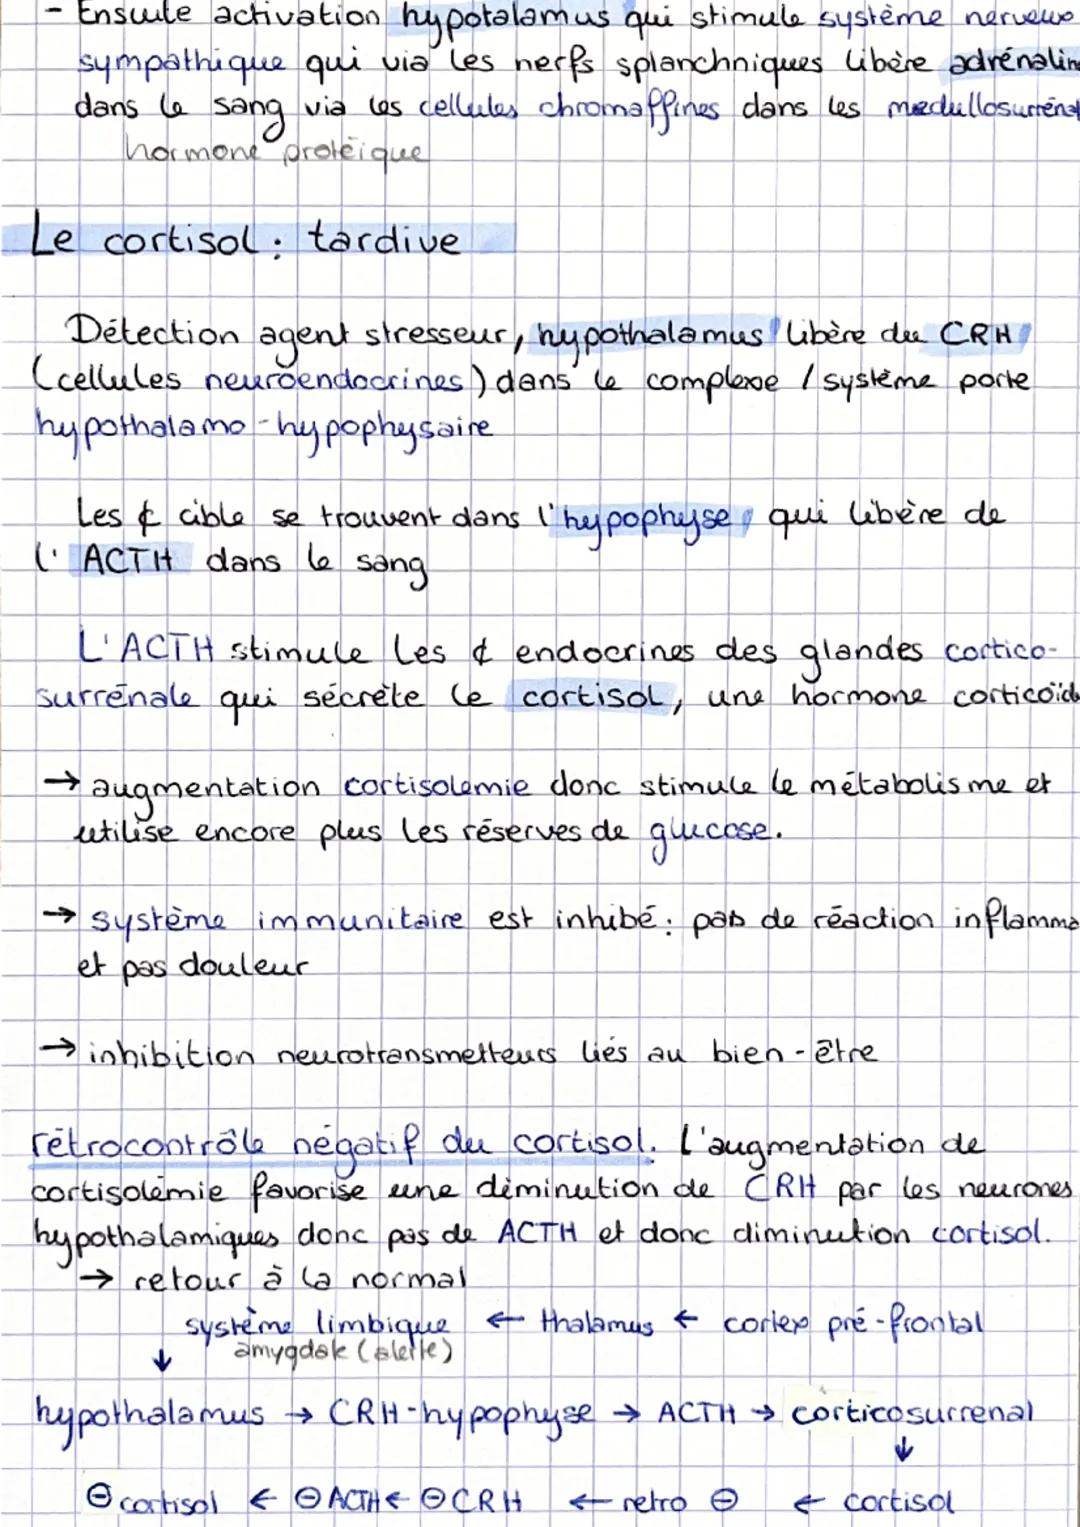 - Ensuite activation hypotalamus qui stimule système nerveux
sympathique qui via les nerfs splanchniques libère adrénalin
dans le sang via les cellules chromaffines dans les medullosurrénal
hormone protéique
Le cortisol : tardive
Détection agent stresseur, hypothalamus libère du CRH
(cellules neuroendocrines) dans le complexe / système porte
hypothalamo-hypophysaire
Les ¢ cible se trouvent dans l'hypophyse, qui libère de
l'ACTH dans le sang
L'ACTH stimule les ¢ endocrines des glandes cortico-
surrénale qui sécrète le cortisol, une hormone corticoïd
→ augmentation cortisolemie donc stimule le métabolisme et
utilise encore plus les réserves de glucose.
→ système immunitaire est inhibé : pas de réaction inflamma
et pas douleur
→ inhibition neurotransmetteurs liés au bien-être
rétrocontrôle négatif du cortisol. L'augmentation de
cortisolémie favorise une diminution de CRH par les neurones
hypothalamiques donc pas de ACTH et donc diminution cortisol.
→ retour à la normal
système limbique ← thalamus ← cortex pré-frontal
↓ amygdale (alerte)
hypothalamus → CRH-hypophyse → ACTH → corticosurrenal
↓
⊖ cortisol ← ⊖ ACTH ← ⊖ CRH ← retro ⊖ ← cortisol